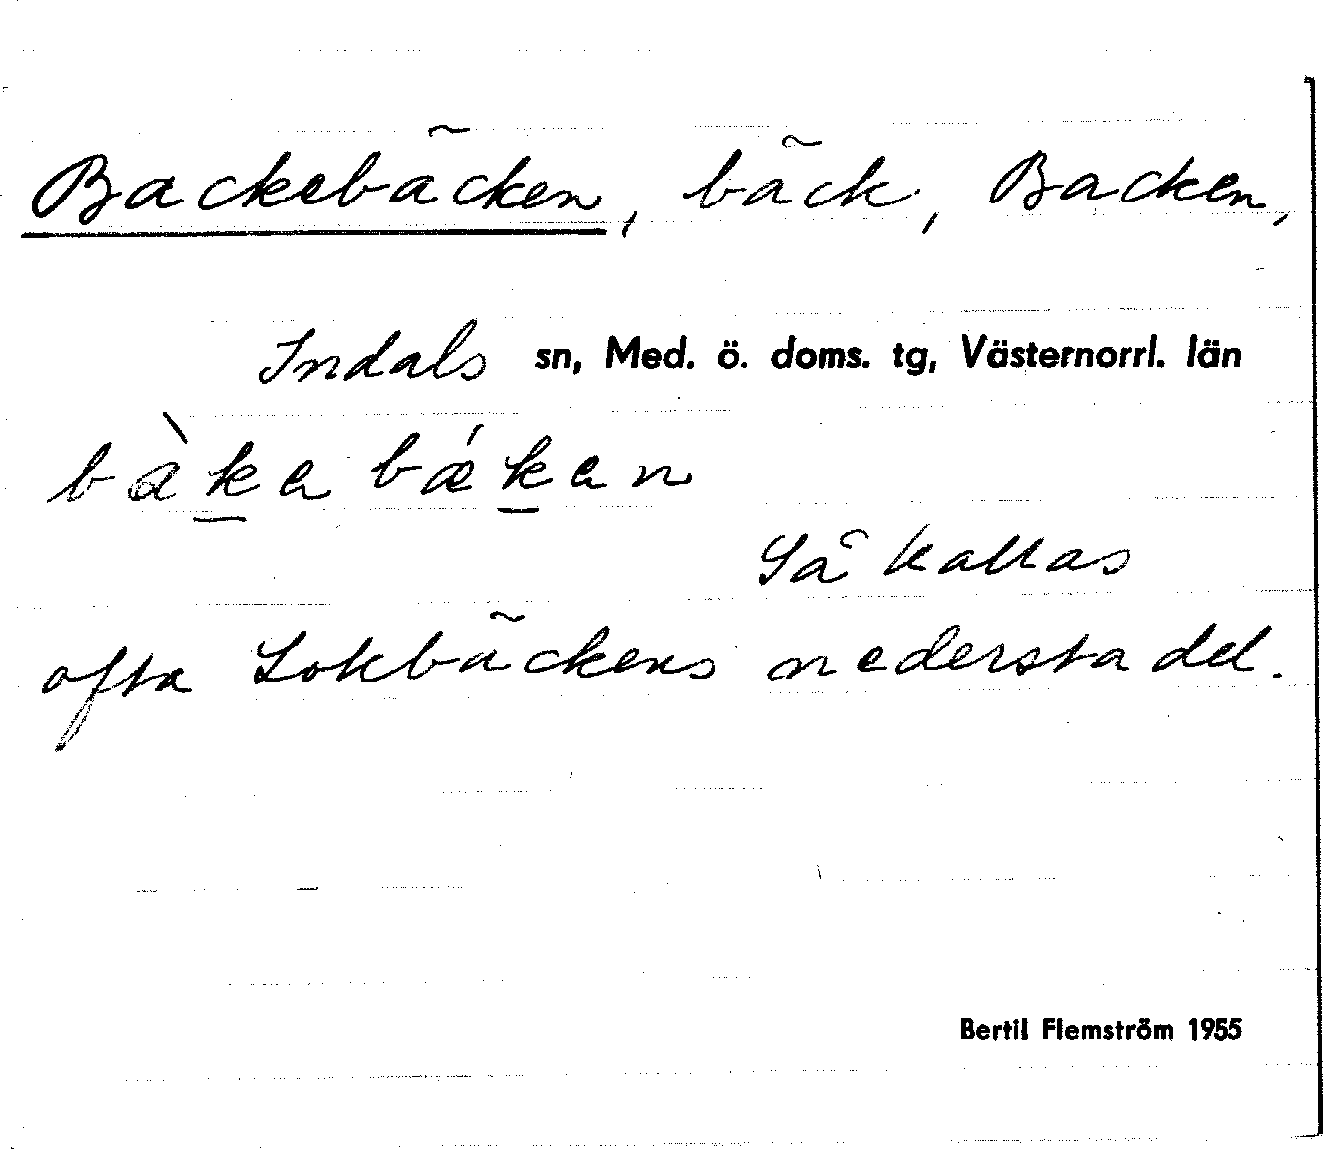 Backebäcken, bäck, Backen,
Indals sn, Med. ö. doms. tg, Västernorrl. län
bàkebǽken
Så kallas
ofta Lokbäckens nedersta del.
Bertil Flemström 1955